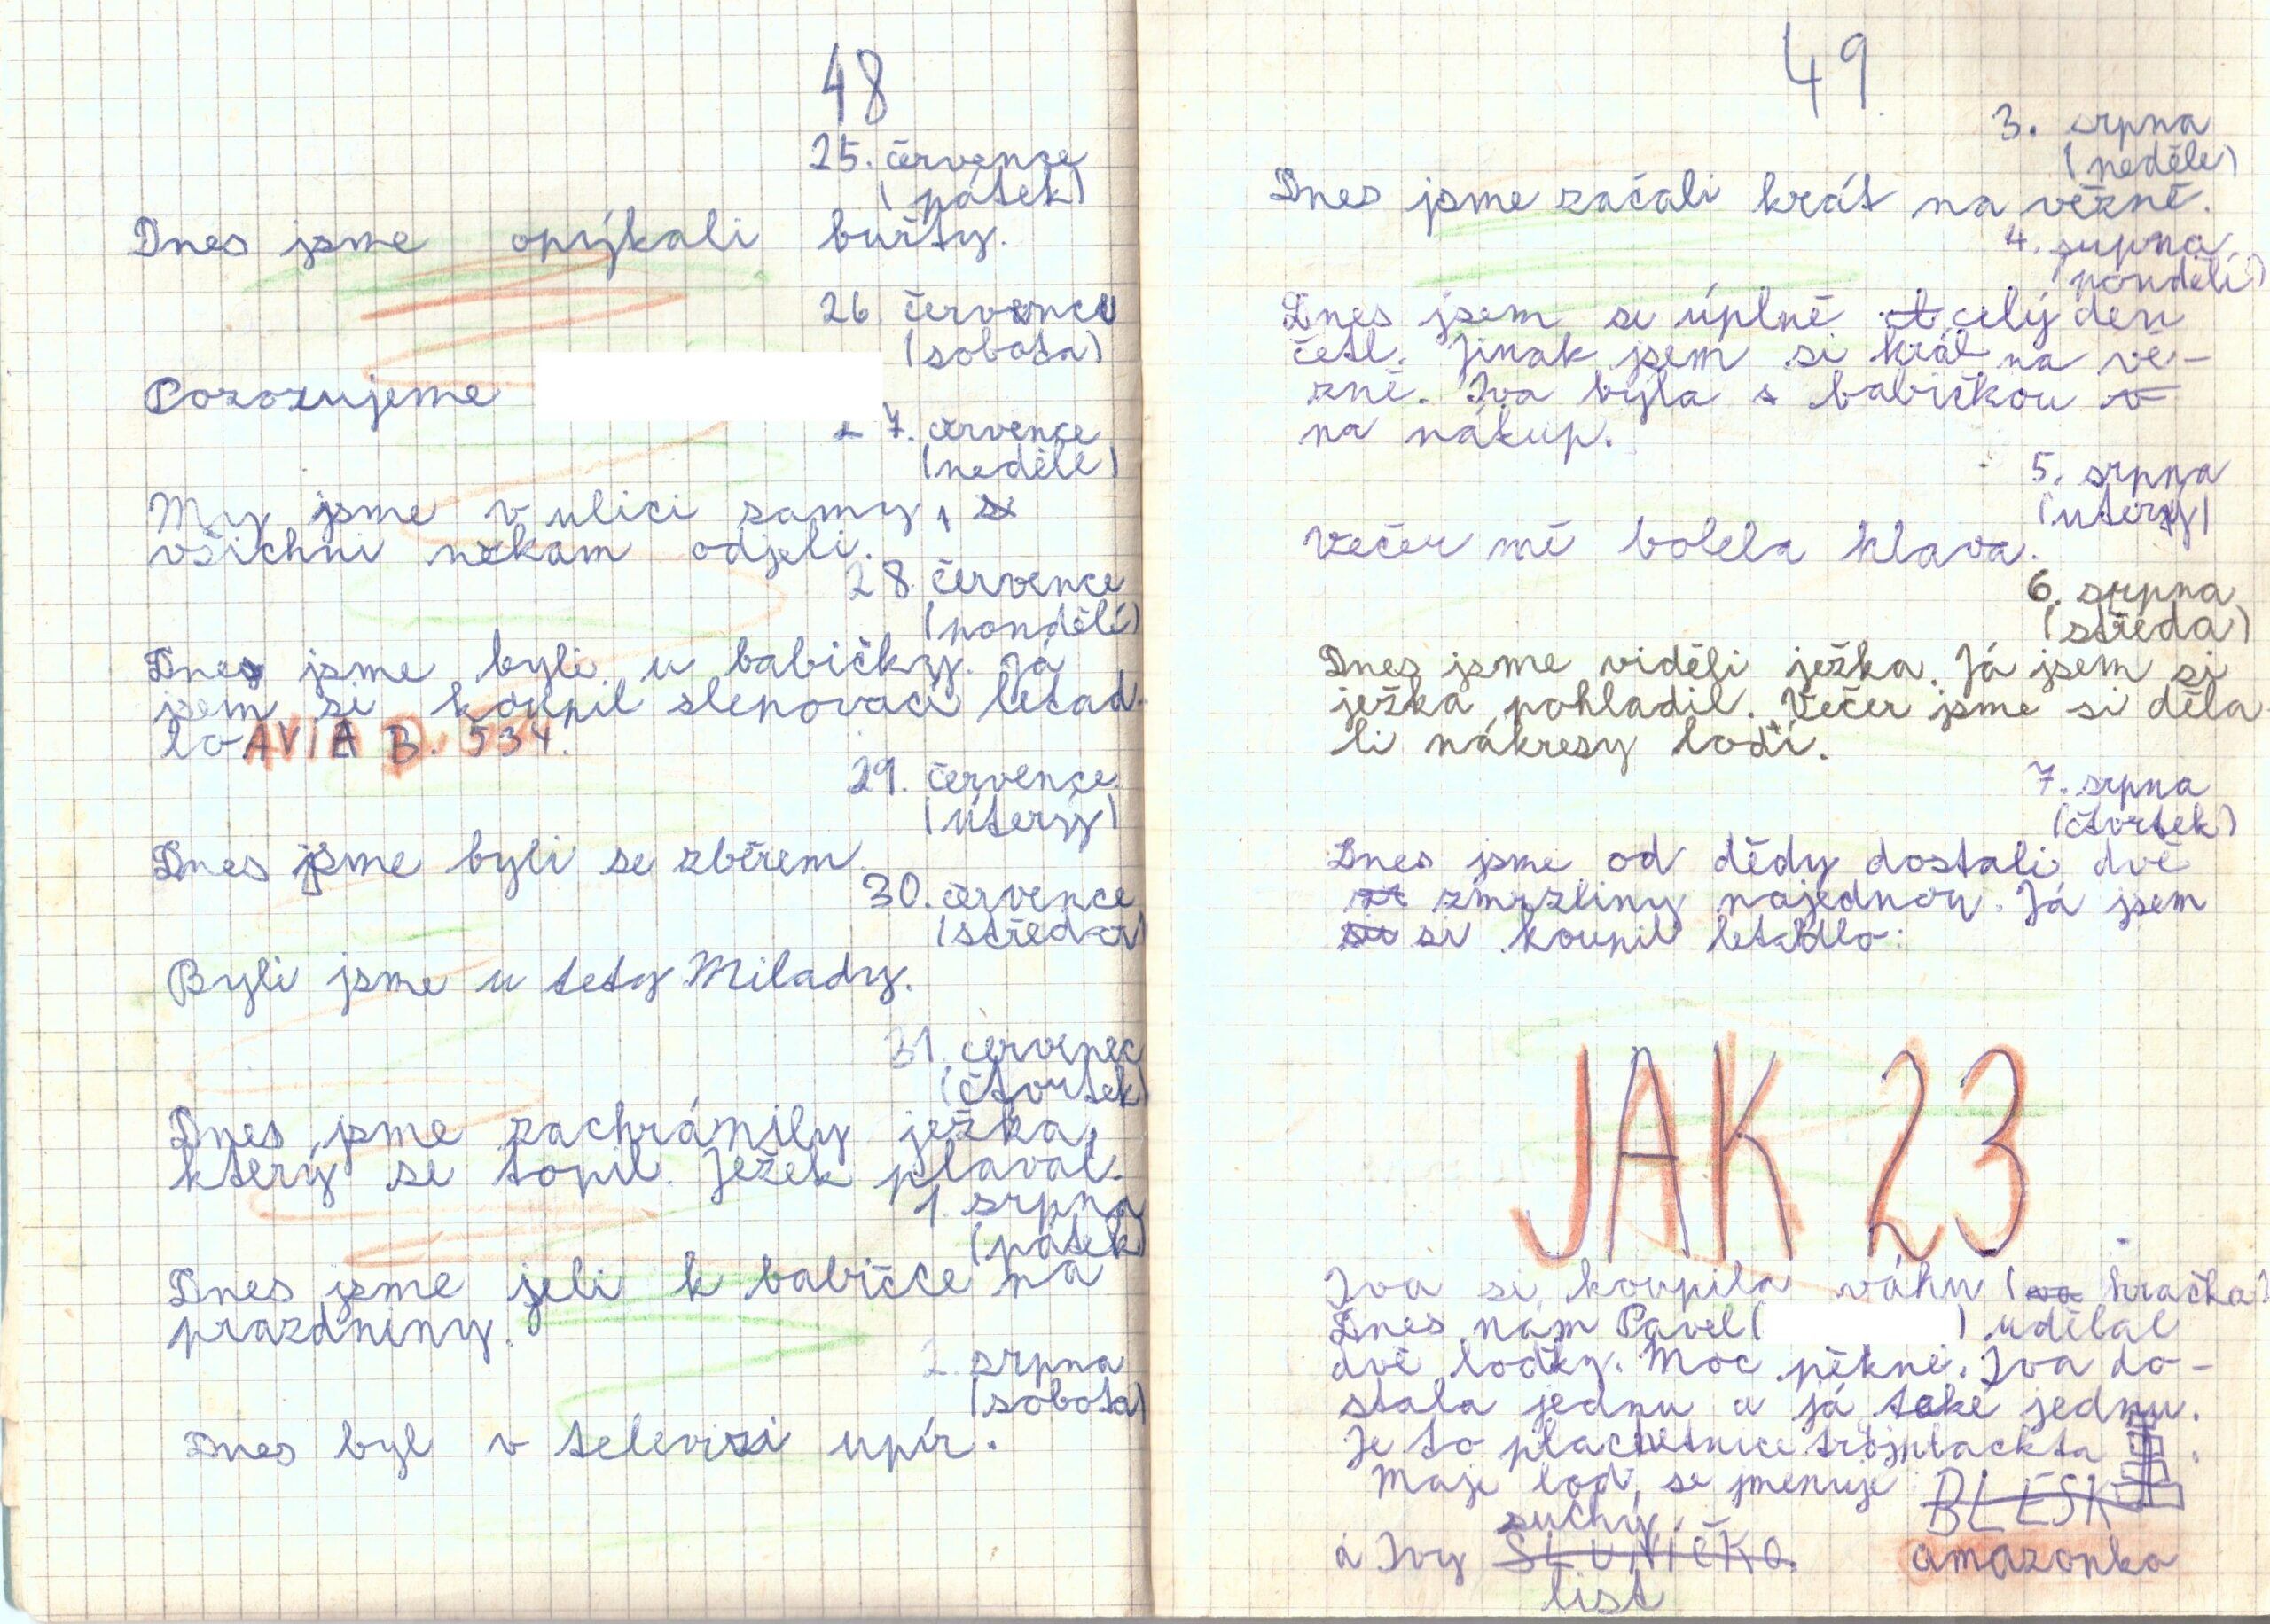 48
25. července
(pátek)
Dnes jsme opýkali buřty.
26. července
(sobota)
Pozorujeme
27. července
(neděle)
My jsme v ulici samy,
všichni někam odjeli.
28. července
(pondělí)
Dnes jsme byli u babičky. Já
jsem si koupil slepovací letad-
lo AVIA B. 534.
29. července
(úterý)
Dnes jsme byli se zběrem.
30. července
(středa)
Byli jsme u tety Milady.
31. červenec
(čtvrtek)
Dnes jsme zachránily ježka,
který se topil. Ježek plaval.
1. srpna
(pátek)
Dnes jsme jeli k babičce na
prazdniny.
2. srpna
(sobota)
Dnes byl v televizi upír.
49
3. srpna
(neděle)
Dnes jsme začali hrát na vězně.
4. srpna
(pondělí)
Dnes jsem si úplně celý den
četl. Jinak jsem si hrál na vě-
zně. Iva byla s babičkou v
na nákup.
5. srpna
(uterý)
Večer mě bolela hlava.
6. srpna
(středa)
Dnes jsme viděli ježka. Já jsem si
ježka pohladil. Večer jsme si děla-
li nákresy lodí.
7. srpna
(čtvrtek)
Dnes jsme od dědy dostali dvě
zmrzliny najednou. Já jsem
si koupil letadlo:
JAK 23
Iva si koupila váhu (hračka)
Dnes nám Pavel ( ) udělal
dvě loďky. Moc pěkné. Iva do-
stala jednu a já také jednu.
Je to plachetnice trojplachta .
Maje loď se jmenuje BLESK
suchý
a Ivy SLUNIČKO. amazonka
list